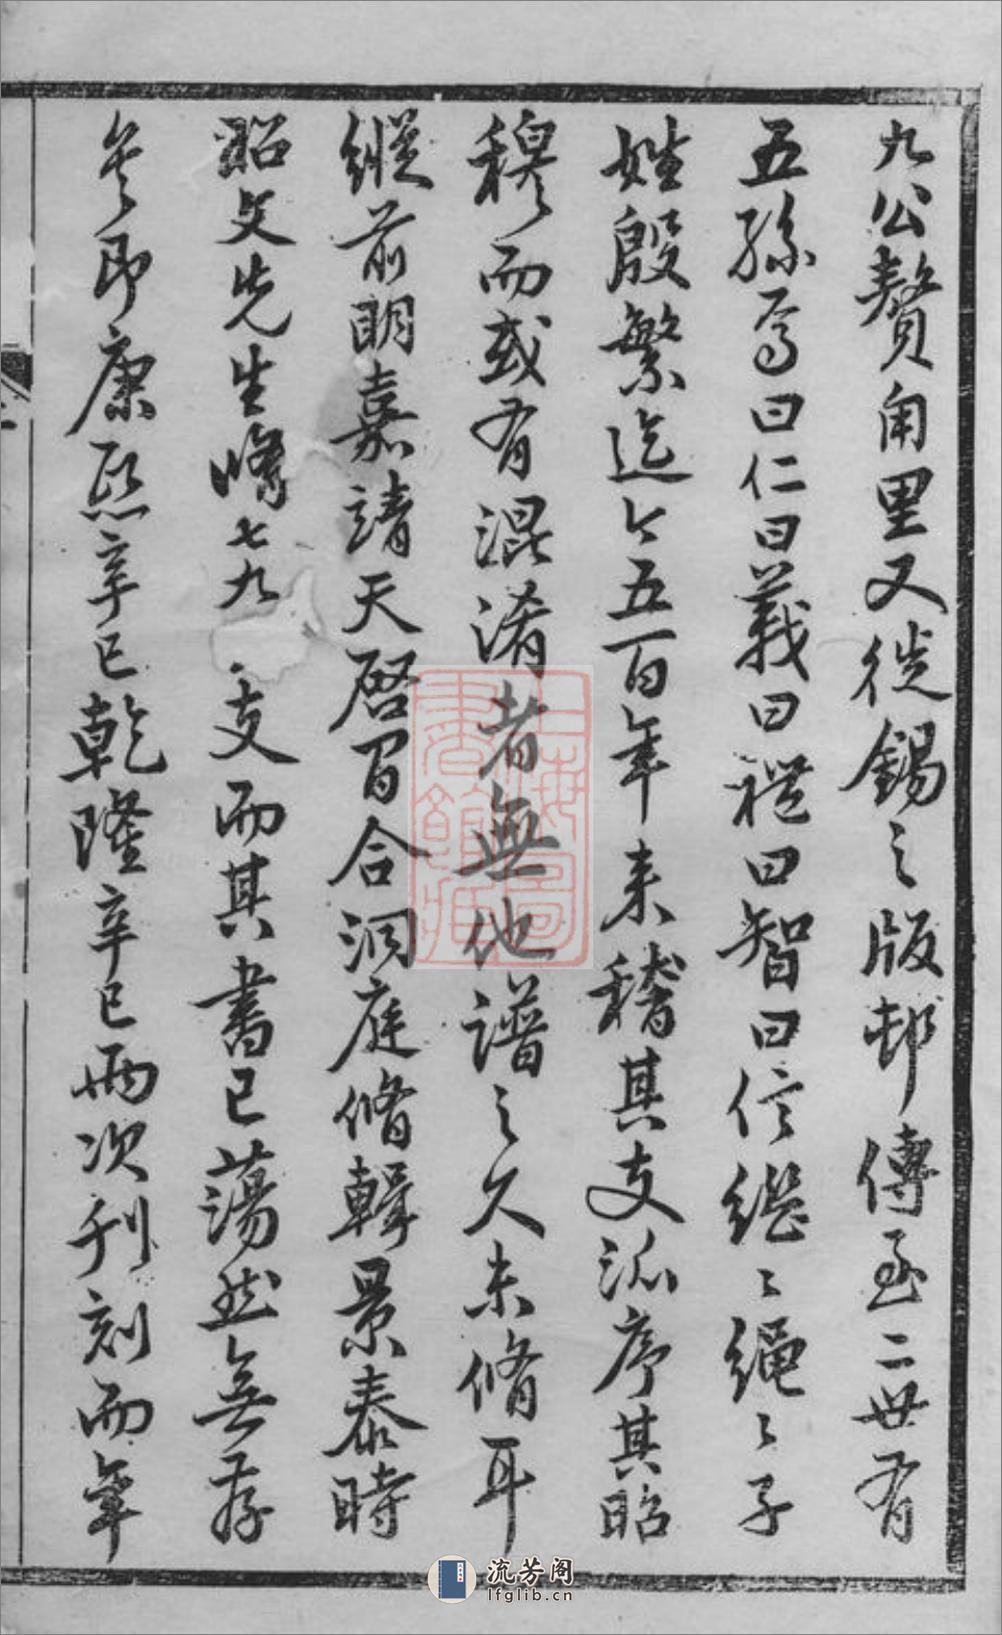 九公贅甪里又徙錫之版邨傳至二世有
五孫焉曰仁曰義曰禮曰智曰信繼〻繩〻子
姓殷繁迄今五百年来稽其支派序其昭
穆而或有混淆者無他譜之久未脩耳
縱前明嘉靖天啓間合洞庭脩輯景泰時
昭文先生脩七九支而其書已蕩然無存
矣即康熙辛巳乾隆辛巳兩次刊刻而年
上海圖書館藏
流芳阁
lfglib.cn